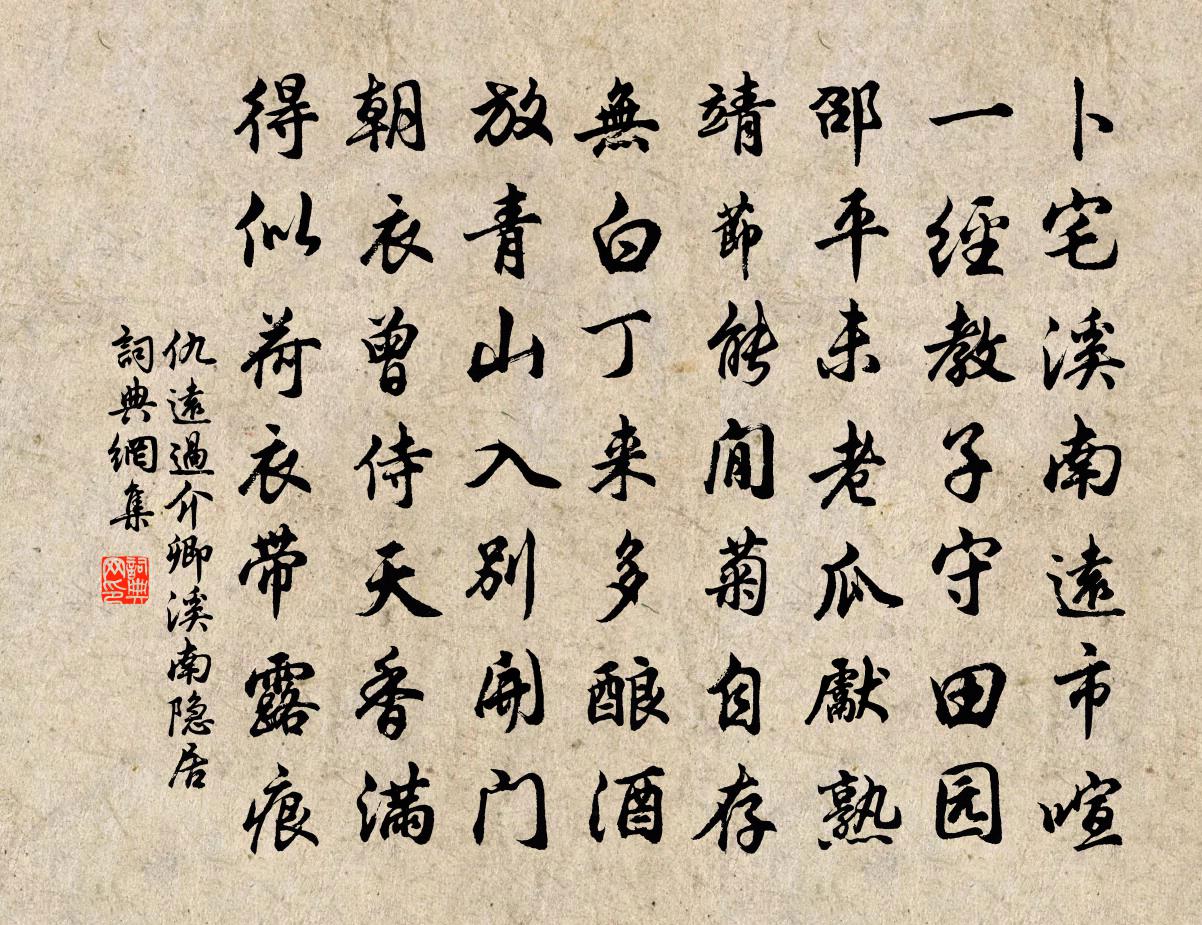 卜宅溪南遠市喧
一經教子守田园
邵平未老瓜獻熟
靖節能閒菊自存
無白丁来多酿酒
放青山入别開门
朝衣曾侍天香满
得似荷衣带露痕
仇遠過介卿溪南隐居
詞典網集
詞典网印